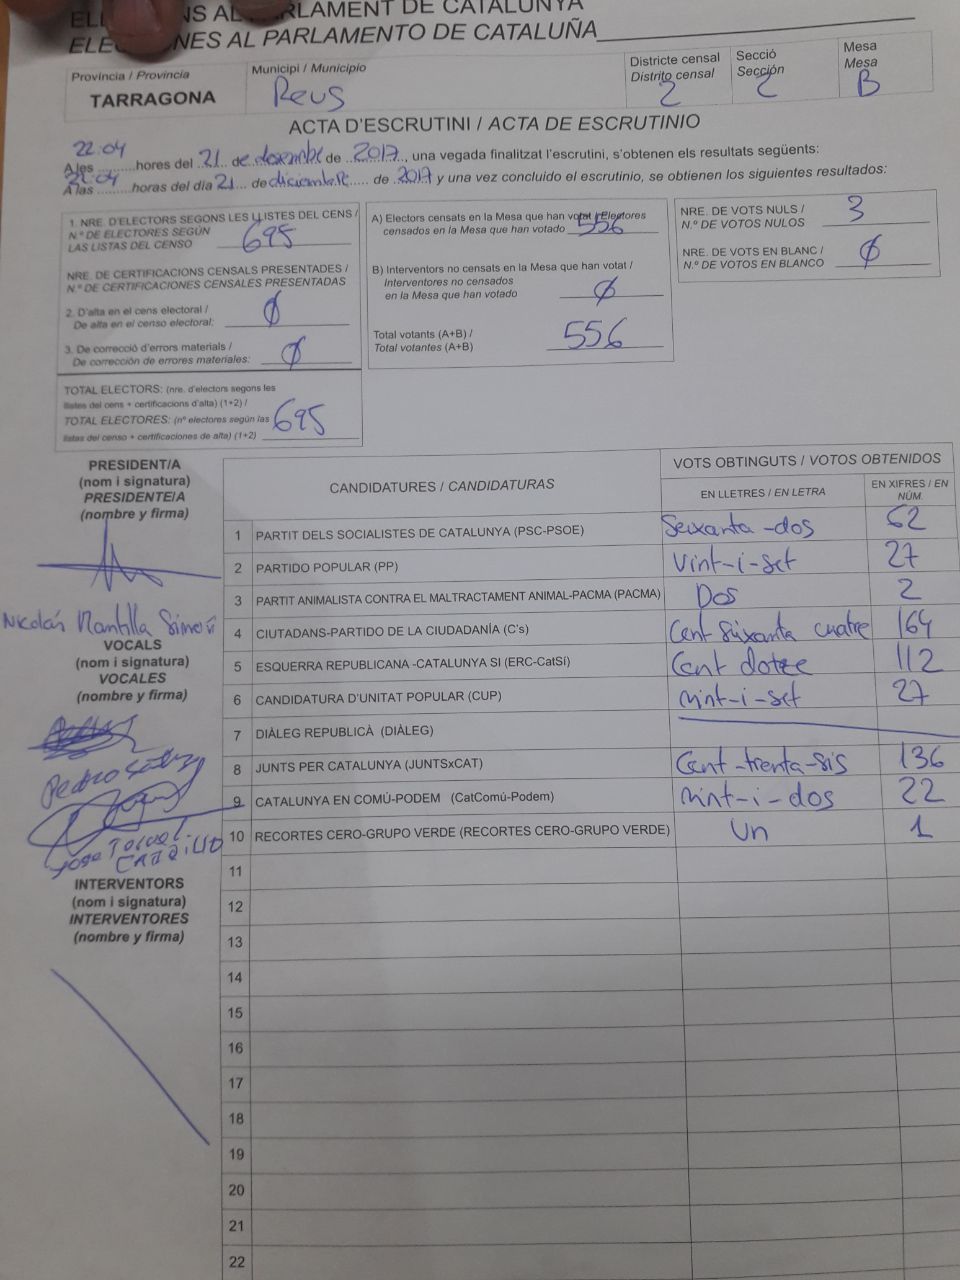 ELECCIONS AL PARLAMENT DE CATALUNYA
ELECCIONES AL PARLAMENTO DE CATALUÑA
Província / Provincia
TARRAGONA
Municipi / Municipio
Reus
Districte censal
Distrito censal
2
Secció
Sección
2
Mesa
Mesa
B
ACTA D'ESCRUTINI / ACTA DE ESCRUTINIO
A les 22:04 hores del 21 de desembre de 2017, una vegada finalitzat l'escrutini, s'obtenen els resultats següents:
A las 22:04 horas del día 21 de diciembre de 2017 y una vez concluido el escrutinio, se obtienen los siguientes resultados:
1. NRE. D'ELECTORS SEGONS LES LLISTES DEL CENS /
N.º DE ELECTORES SEGÚN
LAS LISTAS DEL CENSO 695
NRE. DE CERTIFICACIONS CENSALS PRESENTADES /
N.º DE CERTIFICACIONES CENSALES PRESENTADAS
2. D'alta en el cens electoral /
De alta en el censo electoral: Ø
3. De correcció d'errors materials /
De corrección de errores materiales: Ø
TOTAL ELECTORS: (nre. d'electors segons les
llistes del cens + certificacions d'alta) (1+2) /
TOTAL ELECTORES: (nº electores según las
listas del censo + certificaciones de alta) (1+2) 695
A) Electors censats en la Mesa que han votat / Electores
censados en la Mesa que han votado 556
B) Interventors no censats en la Mesa que han votat /
Interventores no censados
en la Mesa que han votado Ø
Total votants (A+B) /
Total votantes (A+B) 556
NRE. DE VOTS NULS /
N.º DE VOTOS NULOS 3
NRE. DE VOTS EN BLANC /
N.º DE VOTOS EN BLANCO Ø
PRESIDENT/A
(nom i signatura)
PRESIDENTE/A
(nombre y firma)
Nicolás Mantilla
VOCALS
(nom i signatura)
VOCALES
(nombre y firma)
Pedro
INTERVENTORS
(nom i signatura)
INTERVENTORES
(nombre y firma)
CANDIDATURES / CANDIDATURAS
VOTS OBTINGUTS / VOTOS OBTENIDOS
EN LLETRES / EN LETRA
EN XIFRES / EN
NÚM.
1 PARTIT DELS SOCIALISTES DE CATALUNYA (PSC-PSOE) Seixanta-dos 62
2 PARTIDO POPULAR (PP) Vint-i-set 27
3 PARTIT ANIMALISTA CONTRA EL MALTRACTAMENT ANIMAL-PACMA (PACMA) Dos 2
4 CIUTADANS-PARTIDO DE LA CIUDADANÍA (C's) Cent seixanta cuatre 164
5 ESQUERRA REPUBLICANA -CATALUNYA SI (ERC-CatSí) Cent dotze 112
6 CANDIDATURA D'UNITAT POPULAR (CUP) Vint-i-set 27
7 DIÀLEG REPUBLICÀ (DIÀLEG)
8 JUNTS PER CATALUNYA (JUNTSxCAT) Cent-trenta-sis 136
9 CATALUNYA EN COMÚ-PODEM (CatComú-Podem) Vint-i-dos 22
10 RECORTES CERO-GRUPO VERDE (RECORTES CERO-GRUPO VERDE) Un 1
11
12
13
14
15
16
17
18
19
20
21
22